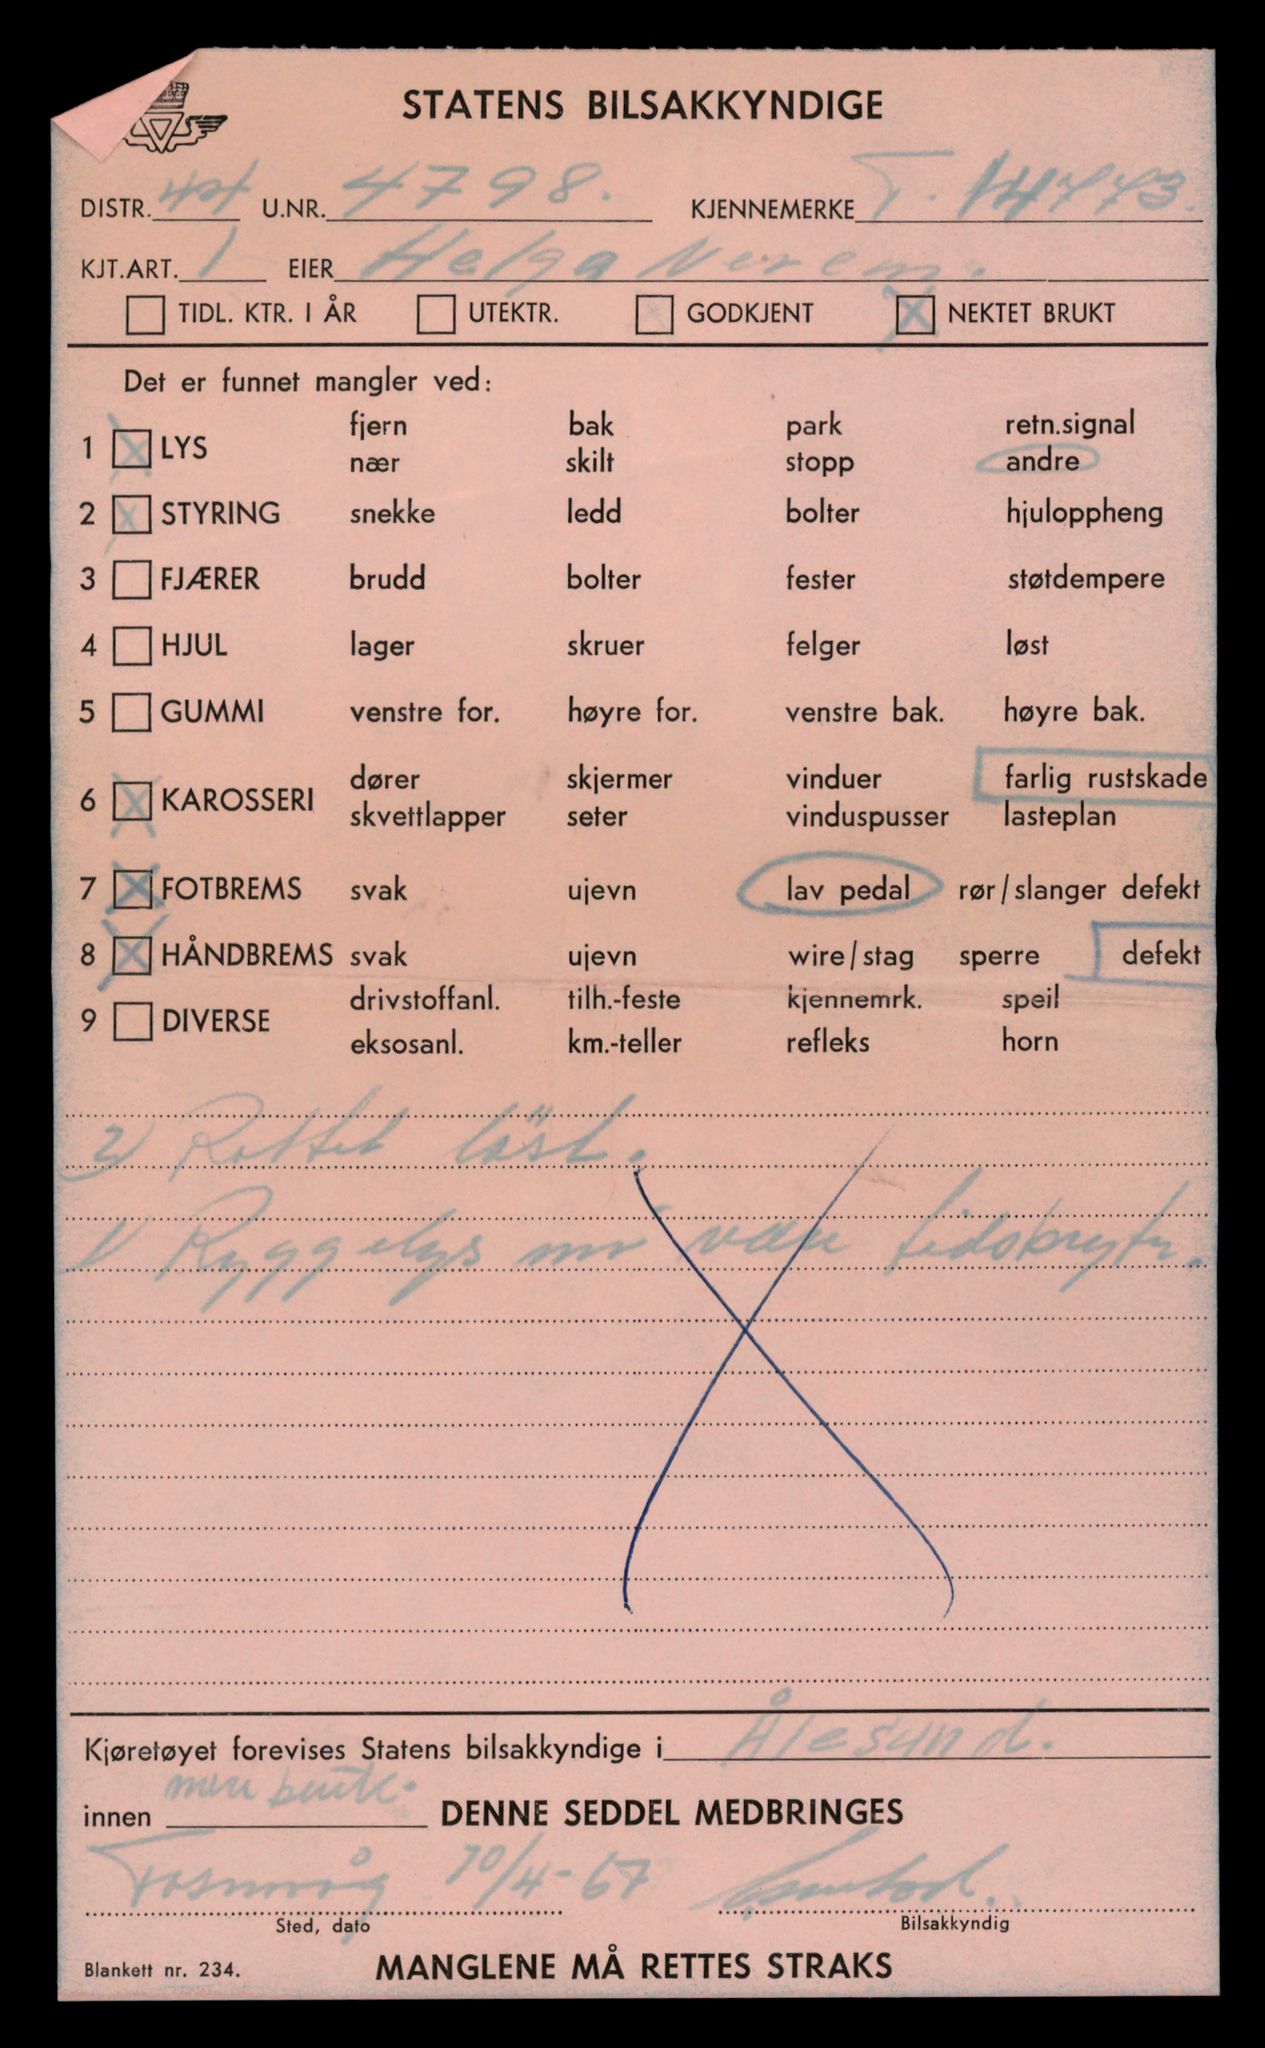 STATENS BILSAKKYNDIGE
DISTR. 44 U.NR. 4798. KJENNEMERKE T. 14773.
KJT.ART. 1 EIER Helga Nerem.
TIDL. KTR. I ÅR UTEKTR. GODKJENT NEKTET BRUKT
Det er funnet mangler ved:
1 LYS fjern bak park retn.signal
nær skilt stopp andre
2 STYRING snekke ledd bolter hjuloppheng
3 FJÆRER brudd bolter fester støtdempere
4 HJUL lager skruer felger løst
5 GUMMI venstre for. høyre for. venstre bak. høyre bak.
6 KAROSSERI dører skjermer vinduer farlig rustskade
skvettlapper seter vinduspusser lasteplan
7 FOTBREMS svak ujevn lav pedal rør/slanger defekt
8 HÅNDBREMS svak ujevn wire/stag sperre defekt
9 DIVERSE drivstoffanl. tilh.-feste kjennemrk. speil
eksosanl. km.-teller refleks horn
2) Rattet löst.
1) Ryggelys
Kjøretøyet forevises Statens bilsakkyndige i Ålesund.
innen DENNE SEDDEL MEDBRINGES
10/4-67
Sted, dato Bilsakkyndig
Blankett nr. 234. MANGLENE MÅ RETTES STRAKS